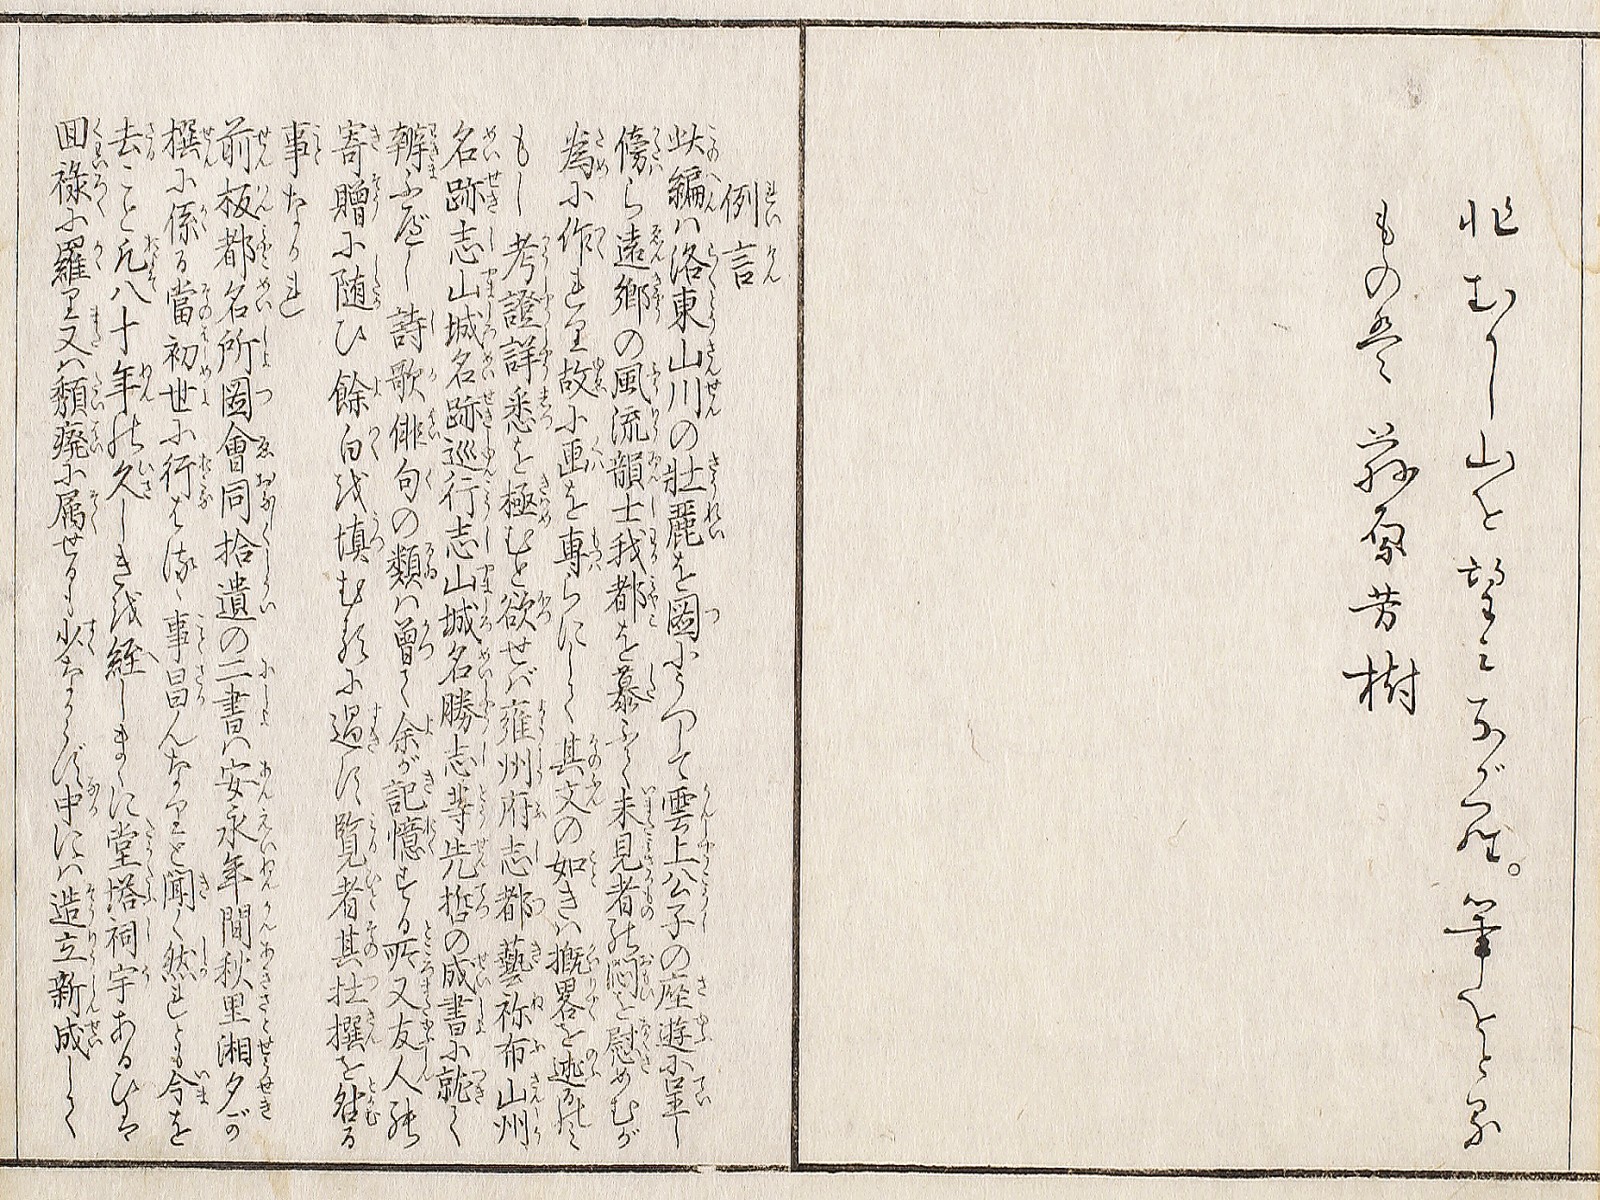 ひむかし山を望てながめ。筆をとる
ものは 萩原芳樹
例言
此編ハ洛東山川の壮麗を圖にうつして雲上公子の座遊に呈し
傍ら遠郷の風流韻士我都を慕ふて未見者の悶を慰めむが
為に作れり故に画を専らにして其文の如きハ概畧を述るのミ
もし考證詳悉を極むと欲せバ雍州府志都藝祢布山州
名跡志山城名跡巡行志山城名勝志等先哲の成書に就て
辨ふべし詩歌俳句の類ハ曽て余が記憶する所又友人の
寄贈に随ひ餘白を填むるに過ず覧者其杜撰を咎る
事なかれ
前板都名所圖會同拾遺の二書ハ安永年間秋里湘夕が
撰に係る當初世に行はるゝ事昌んなりと聞く然れとも今を
去こと凡八十年の久しきを経しまゝに堂塔祠宇あるひは
回禄に羅り又ハ頽廃に属せるも少なからず中にハ造立新成して